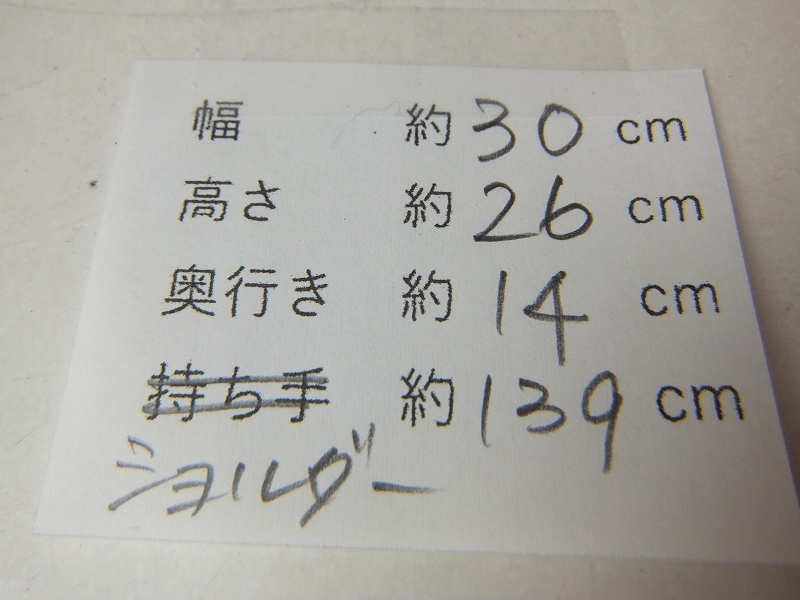 幅 約 30 cm
高さ 約 26 cm
奥行き 約 14 cm
持ち手 約 139 cm
ショルダー